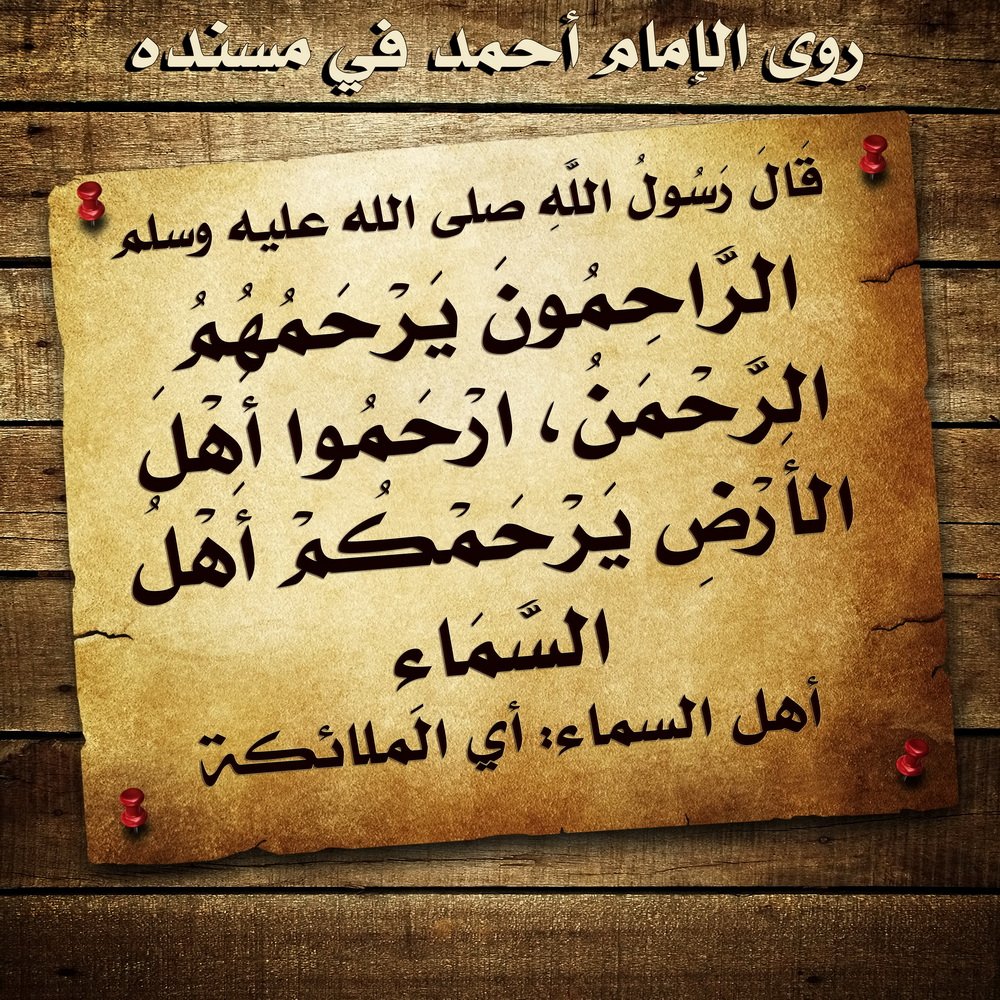 روى الإمام أحمد في مسنده
قَالَ رَسُولُ اللَّهِ صلى الله عليه وسلم
الرَّاحِمُونَ يَرْحَمُهُمُ
الرَّحْمَنُ، ارْحَمُوا أَهْلَ
الأَرْضِ يَرْحَمْكُمْ أَهْلُ
السَّمَاءِ
أهل السماء: أي الَملائكة